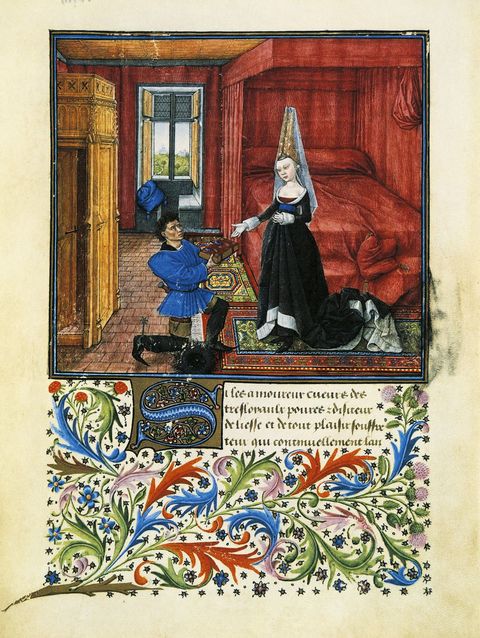 SI les amoureux cueurs des
tresloyaulx poures & disiteux
de liesse et de tout plaisir souffre
teux qui continuellement lan